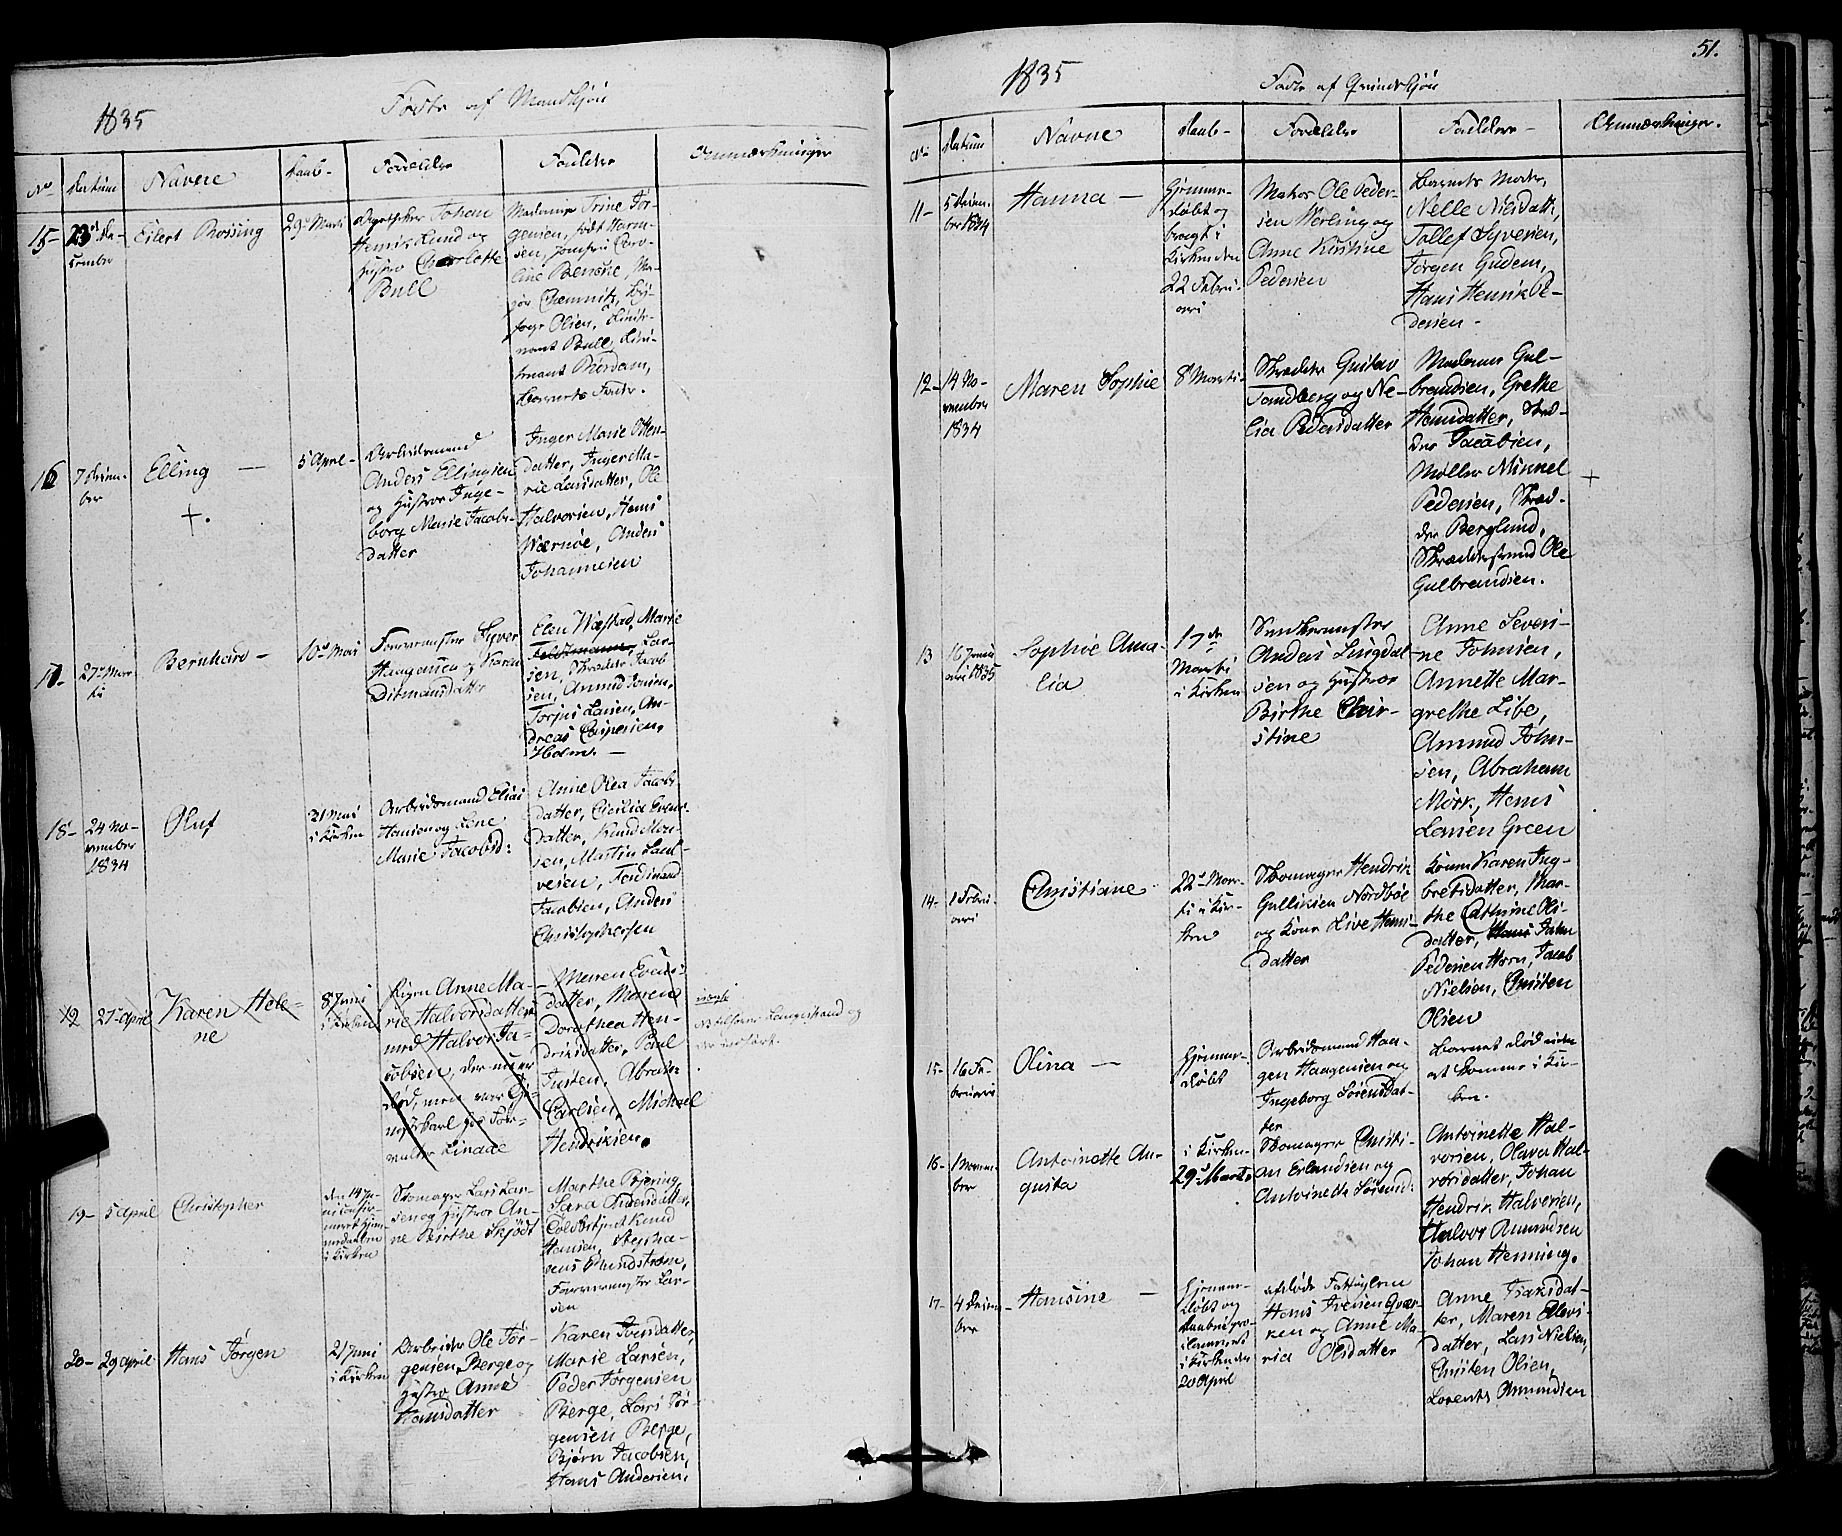 1835
Fødte af Mandkjøn
No
Datum
Navne
Daab-
Forældre
Faddere
Anmærkninger
15-
23de De-
cember
Eilert Rossing
29de Marti
Apotheker Johan
Henrik Lund og
Hustro Charlotte
Bull
Madame Trine Jør-
gensen, født Harm-
sen, Jomfru Caro-
line Bencke, Ma-
jor Chemnitz, By-
foge Olsen, Lieute-
nant Bull, Lieu-
tenant Rørdam,
Barnets Fader.
16
7 Decem-
ber
Elling —
+.
5 April-
Arbeidsmand
Anders Ellingsen
og Hustroe Inge-
borg Marie Jacobs-
datter
Inger Marie Otten-
datter, Inger Ma-
rie Larsdatter, Ole
Halvorsen, Hans
Wærnøe, Anders
Johannesen
17-
27de Mar-
ti
Bernhard -
10de Mai
Farvermester Syver
Haagensen og Karen
Ditmansdatter
Elen Wæstad, Marie
Feldtmann, Lar-
sen, Skræder Jacob-
sen, Anund Jonsen,
Torjus Larsen, An-
dreas Caspersen,
Holm. —
18-
24 No-
vember
1834
Oluf
21 Mai
i Kirken
Arbeidsmand Elias
Hansen og Lene
Marie Jacobsd:
Anne Olea Jacobs-
datter, Cicilia Evens-
datter, Knud Mon-
sen, Martin Laur-
vesen, Ferdinand
Jacobsen, Anders
Christophersen
19
27 April
Karen Hele-
ne
8 Juni
i Kirken
Pigen Anne Ma-
rie Halvorsdatter
med Halvor Ja-
cobsen, der nu er
død, men var Ga-
ardskarl hos For-
valter Linaae
Maren Evens-
datter, Maren
Dorothea Hen-
driksdatter, Paul
Justen, Abrah:
Carlsen, Michael
Hendriksen.
uægte
19- 5 April
Christopher
den 14 Ju-
ni confir-
meret Hjem-
medaaben
i Kirken
Skomager Lars Lar-
sen og Hustroe An-
ne Birthe Skjødt
Marthe Bjering,
Sara Andersdatter,
Coldbetjent Knud
Hansen, Stepha-
nus Rundstrøm,
Farvermester Lar-
sen
20- 29 April
Hans Jørgen
21 Juni
i Kirken
Arbeider Ole Jør-
gensen Berge og
Hustro Anne
Hansdatter
Karen Joensdatter,
Marie Larsen,
Peder Jørgensen
Berge, Lars Jør-
gensen Berge,
Bjørn Jacobsen,
Hans Andersen.
51.
1835
Fødte af Qvindekjøn
No
Datum
Navne
Daab-
Forældre
Faddere -
Anmærkninger.
11-
5 Decem-
ber 1834
Hanna —
Hjemme-
døbt og
bragt i
Kirken den
22 Febru-
ari
Matros Ole Peder-
sen Werling og
Anne Kirstine
Pedersen
Barnets Moder,
Nelle Nielsdatt:,
Tollef Syversen,
Jørgen Gudem,
Hans Henrik Pe-
dersen -
12-
14 No-
vember
1834
Maren Sophie
8de Marti-
Skræder Gustav
Sandberg og Ne-
lia Pedersdatter
Madame Gul-
brandsen, Grethe
Hansdatter, Skræ-
der Jacobsen,
Møller Minnel
Pedersen, Skræ-
der Berglund,
Skrædersvend Ole
Gulbrandsen.
+
13
16 Janu-
ari 1835
Sophie Ama-
lia
17de
Marti
i Kirken
Snedkermester
Anders Lingdal-
sen og Hustroe
Birthe Chir-
stine
Anne Severi-
ne Johnsen,
Annette Mar-
grethe Libe,
Amund John-
sen, Abraham
Mørk, Hans
Larsen Green
14-
1 Febru-
ari
Christiane
22de Mar-
ti i Kir-
ken
Skomager Hendrik
Gulliksen Nordbøe
og Kone Live Hans-
datter
Kone Karen Ing-
bretsdatter, Mar-
the Cathrine Ols-
datter, Hans John
Pedersen Horn, Jacob
Nielsen, Christen
Olsen
15-
16 Fe-
bruari
Olina —
Hjemme-
døbt
Arbeidsmand Haa-
gen Haagensen og
Ingeborg Sørensdat-
ter
Barnet død uden
at komme i Kir-
ken.
16-
1 Novem-
ber
Antoinette Au-
gusta
i Kirken
29de Marti
Skomager Christi-
an Erlandsen og
Antoinette Sørensd:
Antoinette Hal-
vorsen, Olava Hal-
vorsdatter, Johan
Hendrik Halvorsen,
Halvor Amundsen
Johan Henning.
17-
4 Decem-
ber
Hansine —
Hjemme-
døbt og
Daaben pro-
clameret
i Kirken den
20 April
afdøde Fattiglem
Hans Iversen Qvær-
ken og Anne Ma-
ria Olsdatter
Anne Isaksdat-
ter, Maren Olevs-
datter, Lars Nielsen,
Christen Olsen,
Lorents Amundsen